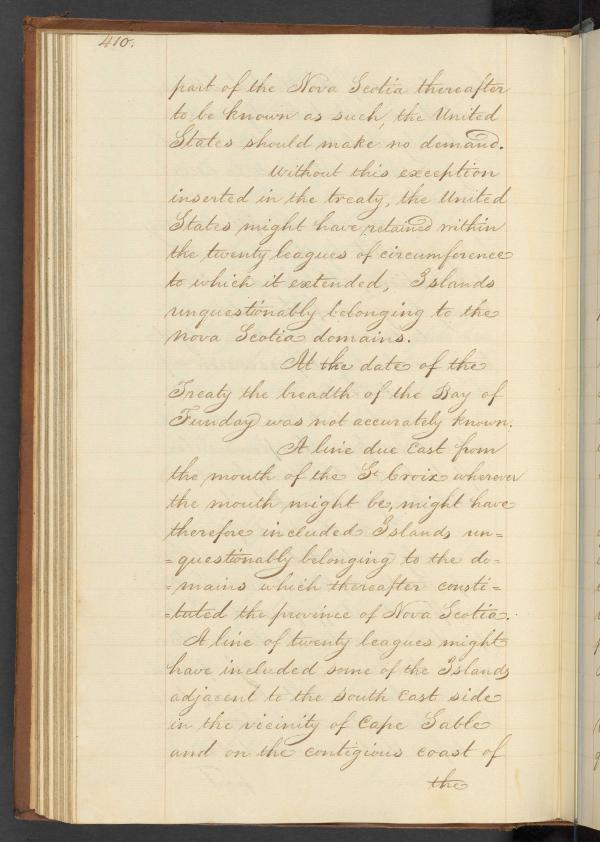 410.
part of the Nova Scotia thereafter
to be known as such, the United
States should make no demand.
Without this exception
inserted in the treaty, the United
States might have retained within
the twenty leagues of circumference
to which it extended, Islands
unquestionably belonging to the
Nova Scotia domains.
At the date of the
Treaty the breadth of the Bay of
Funday was not accurately known.
A line due East from
the mouth of the St Croix wherever
the mouth might be, might have
therefore included Islands un=
=questionably belonging to the do=
=mains which thereafter consti=
=tuted the province of Nova Scotia.
A line of twenty leagues might
have included some of the Islands
adjacent to the South East side
in the vicinity of Cape Sable
and on the contigious coast of
the